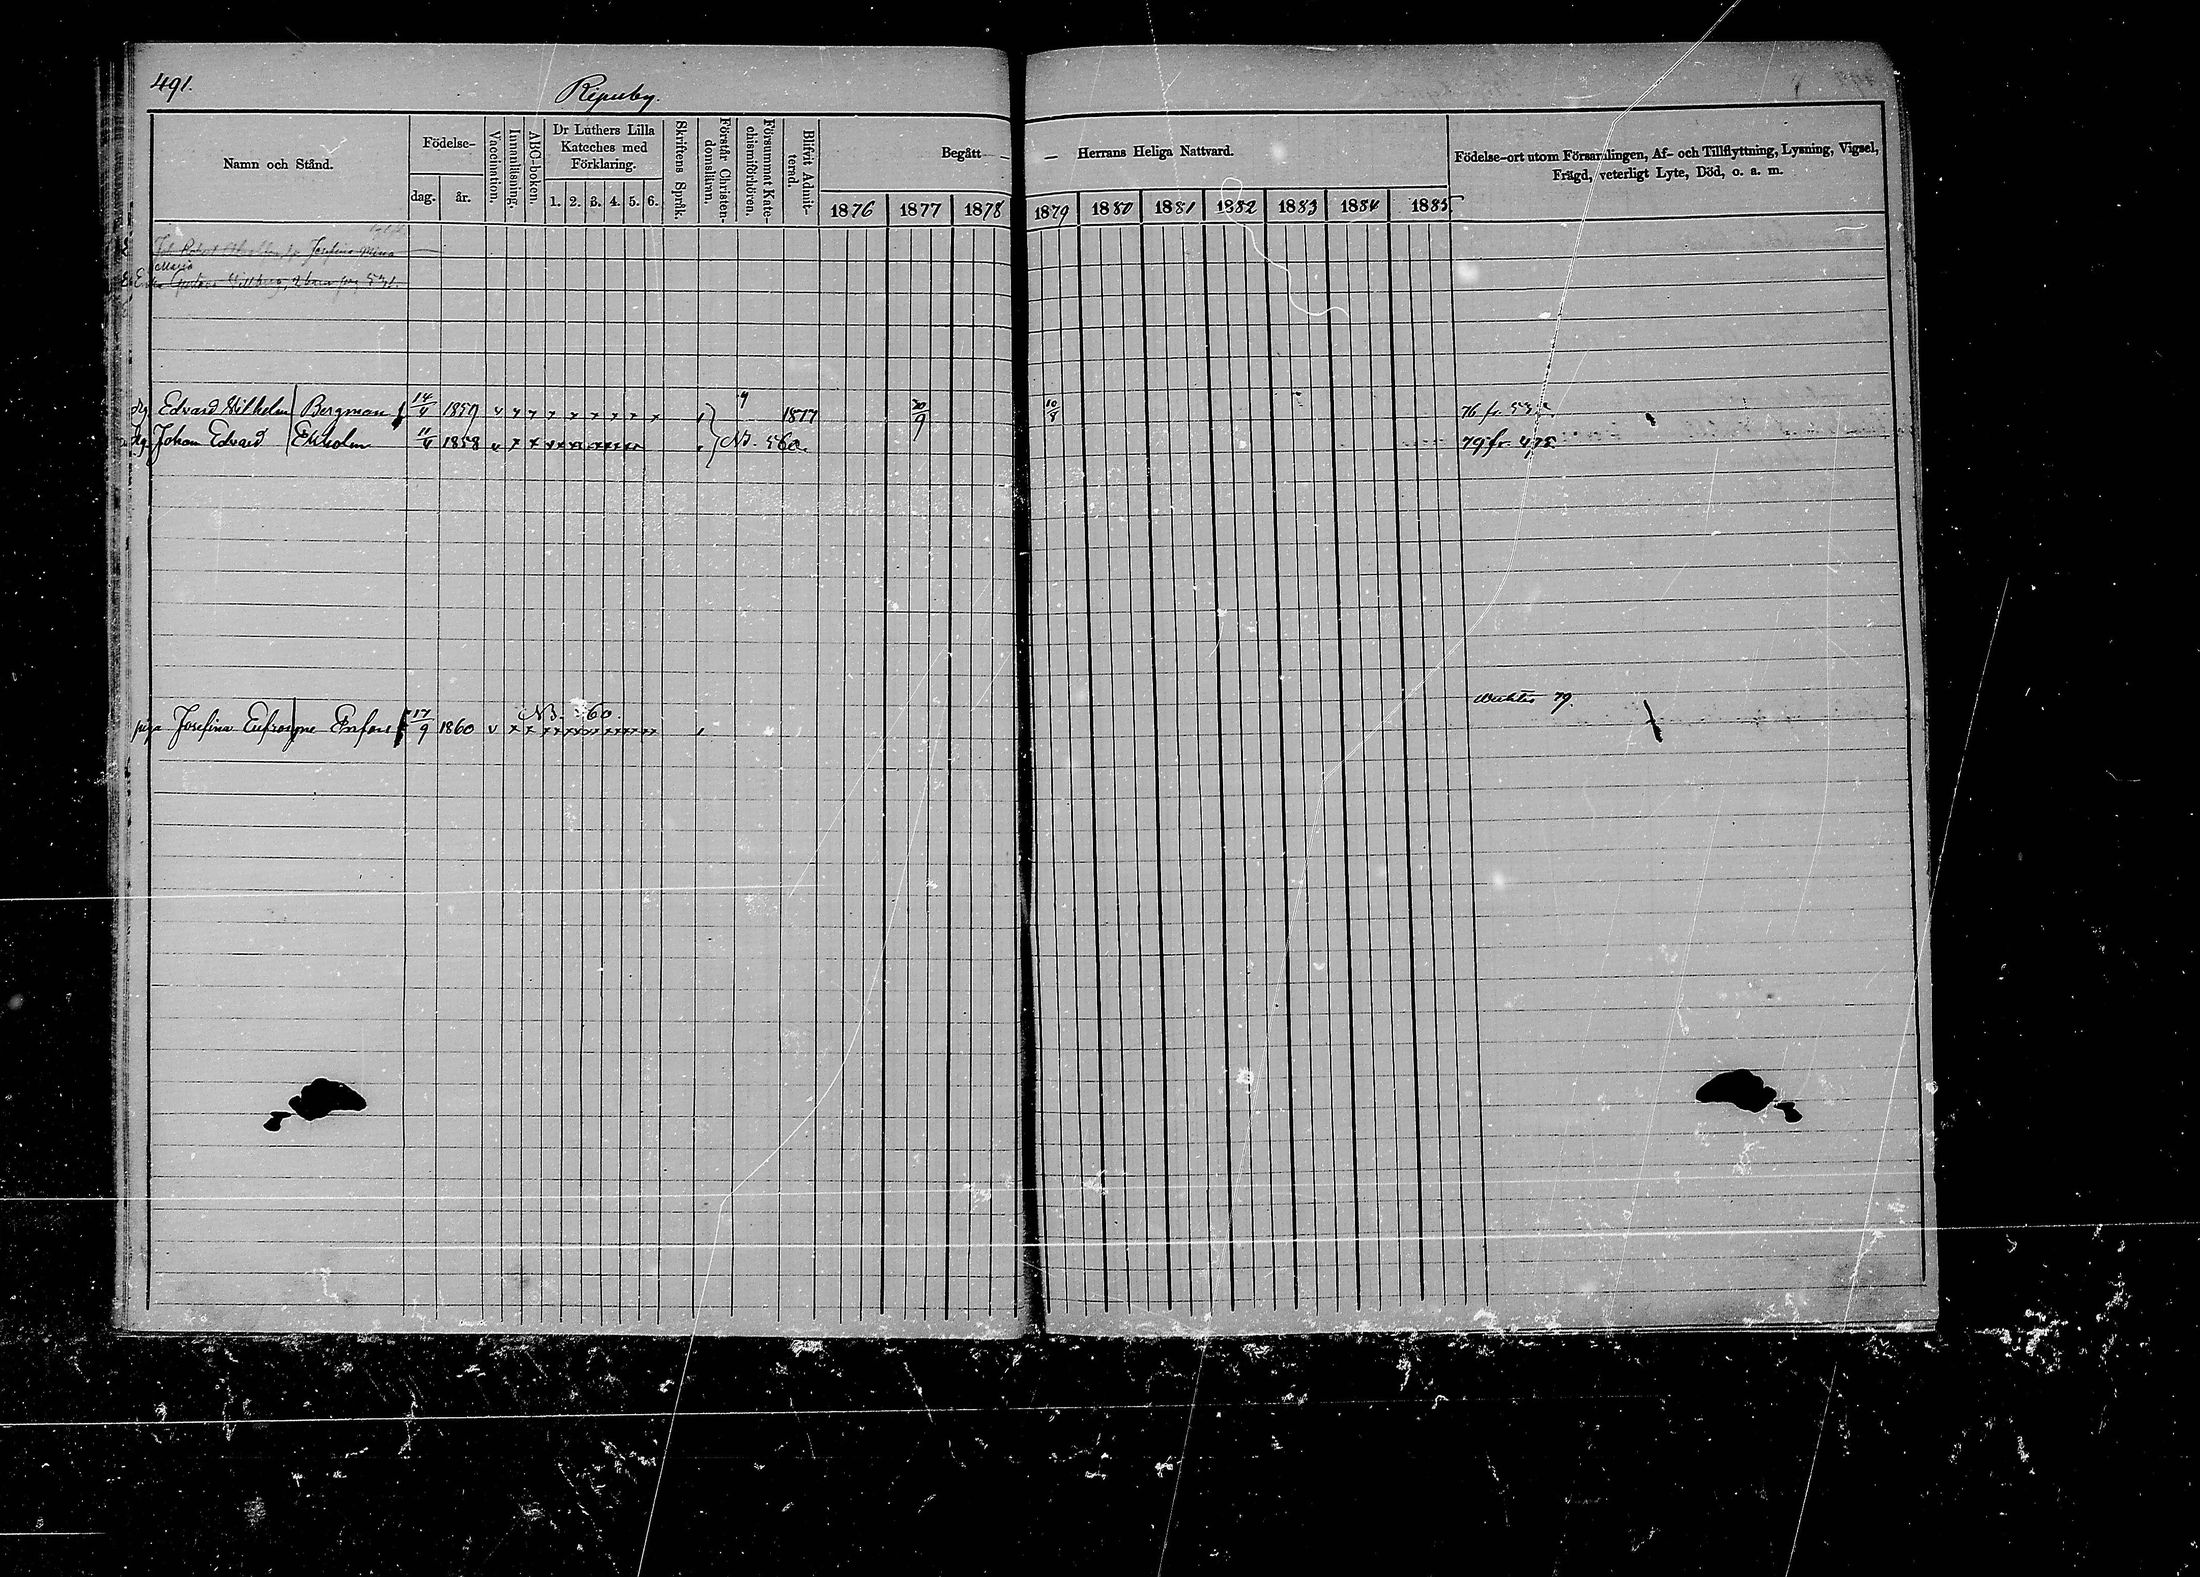 491.
Ripuby.
Namn och Stånd.
Födelse-
dag.
år.
Vaccination.
Innanläsning.
ABC-boken.
Dr Luthers Lilla
Kateches med
Förklaring.
1. 2. 3. 4. 5. 6.
Skriftens Språk.
Förstår Christen-
domslärän.
Försummat Kate-
chismiförhören.
Blifvit Admit-
terad.
Begått — — Herrans Heliga Nattvard.
1876 1877 1878 1879 1880 1881 1882 1883 1884 1885
Födelse-ort utom Församlingen, Af- och Tillflyttning, Lysning, Vigsel,
Frägd, veterligt Lyte, Död, o. a. m.
Josefina Mina
Maria
Edvard Wilhelm Bergman 14/4 1859 v x x x x x x x x 1877 30/9 10/8 76 fr.
Johan Edvard Ekholm 11/4 1858 v x x NB. 560. 79 fr. 475.
NB. 560. 79.
piga Josefina Eufrosyne Enfors 17/9 1860 v x x